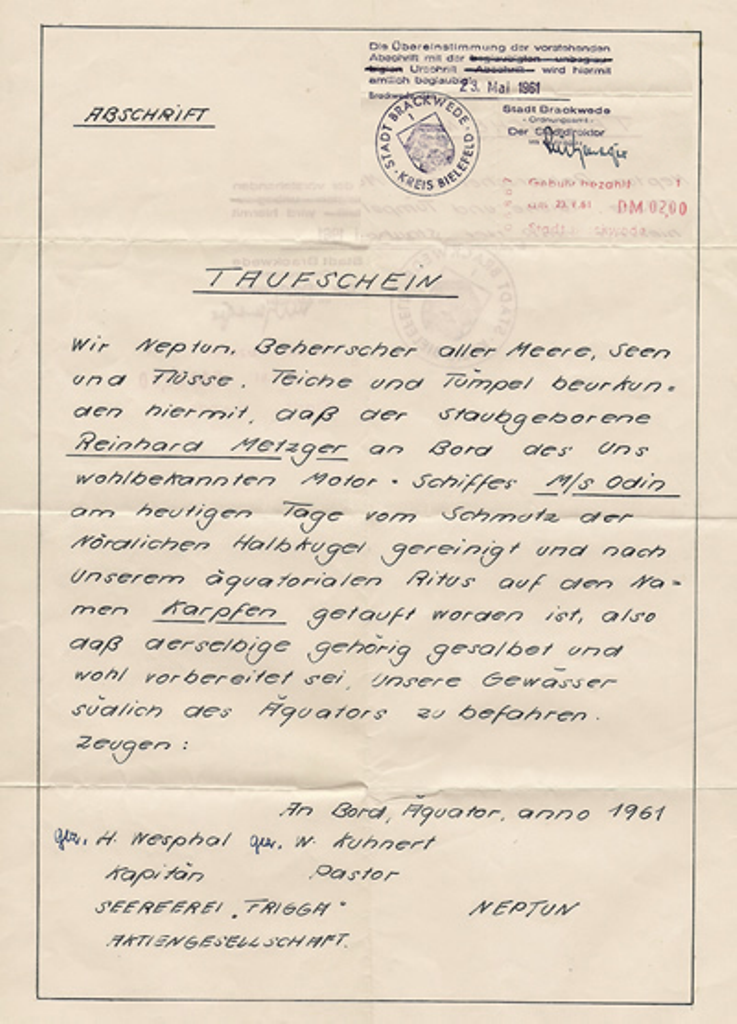 Die Übereinstimmung der vorstehenden
Abschrift mit der beglaubigten - unbeglau-
bigten Urschrift - Abschrift - wird hiermit
amtlich beglaubigt.
Brackwede, den 23. Mai 1961
Stadt Brackwede
- Ordnungsamt -
Der Stadtdirektor
ABSCHRIFT
STADT BRACKWEDE · KREIS BIELEFELD
Gebühr bezahlt
DM 02,00
TAUFSCHEIN
Wir Neptun, Beherrscher aller Meere, Seen
und Flüsse, Teiche und Tümpel beurkun-
den hiermit, daß der staubgeborene
Reinhard Metzger an Bord des Uns
wohlbekannten Motor - Schiffes M/s Odin
am heutigen Tage vom Schmutz der
Nördlichen Halbkugel gereinigt und nach
Unserem äquatorialen Ritus auf den Na-
men Karpfen getauft worden ist, also
daß derselbige gehörig gesalbet und
wohl vorbereitet sei, Unsere Gewässer
südlich des Äquators zu befahren.
Zeugen:
An Bord, Äquator, anno 1961
gez. H. Wesphal gez. W. Kuhnert
Kapitän Pastor
SEEREEREI "FRIGGA" NEPTUN
AKTIENGESELLSCHAFT.